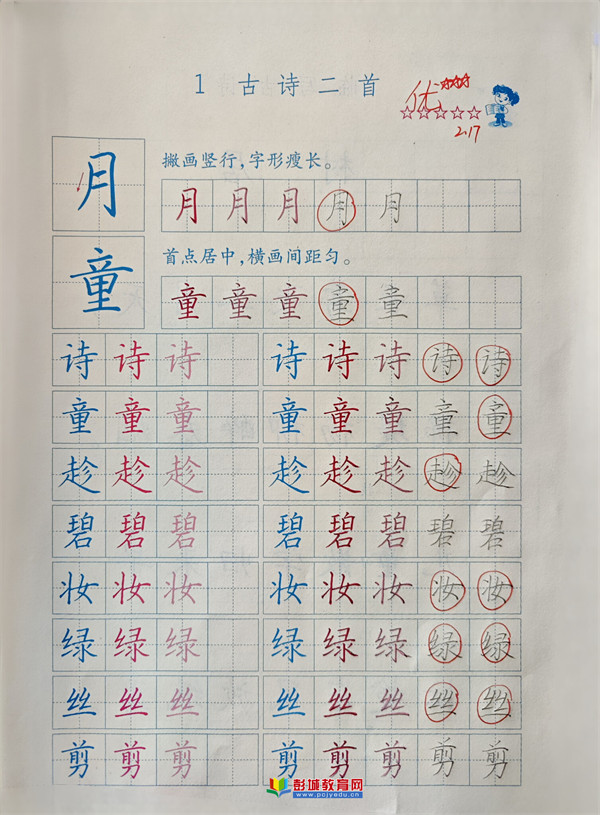 1 古诗二首
优
2.17
月 撇画竖行，字形瘦长。
月 月 月 月 月
童 首点居中，横画间距匀。
童 童 童 童 童
诗 诗 诗 诗 诗 诗 诗 诗
童 童 童 童 童 童 童 童
趁 趁 趁 趁 趁 趁 趁 趁
碧 碧 碧 碧 碧 碧 碧 碧
妆 妆 妆 妆 妆 妆 妆 妆
绿 绿 绿 绿 绿 绿 绿 绿
丝 丝 丝 丝 丝 丝 丝 丝
剪 剪 剪 剪 剪 剪 剪 剪
彭城教育网
www.pcjyedu.cn